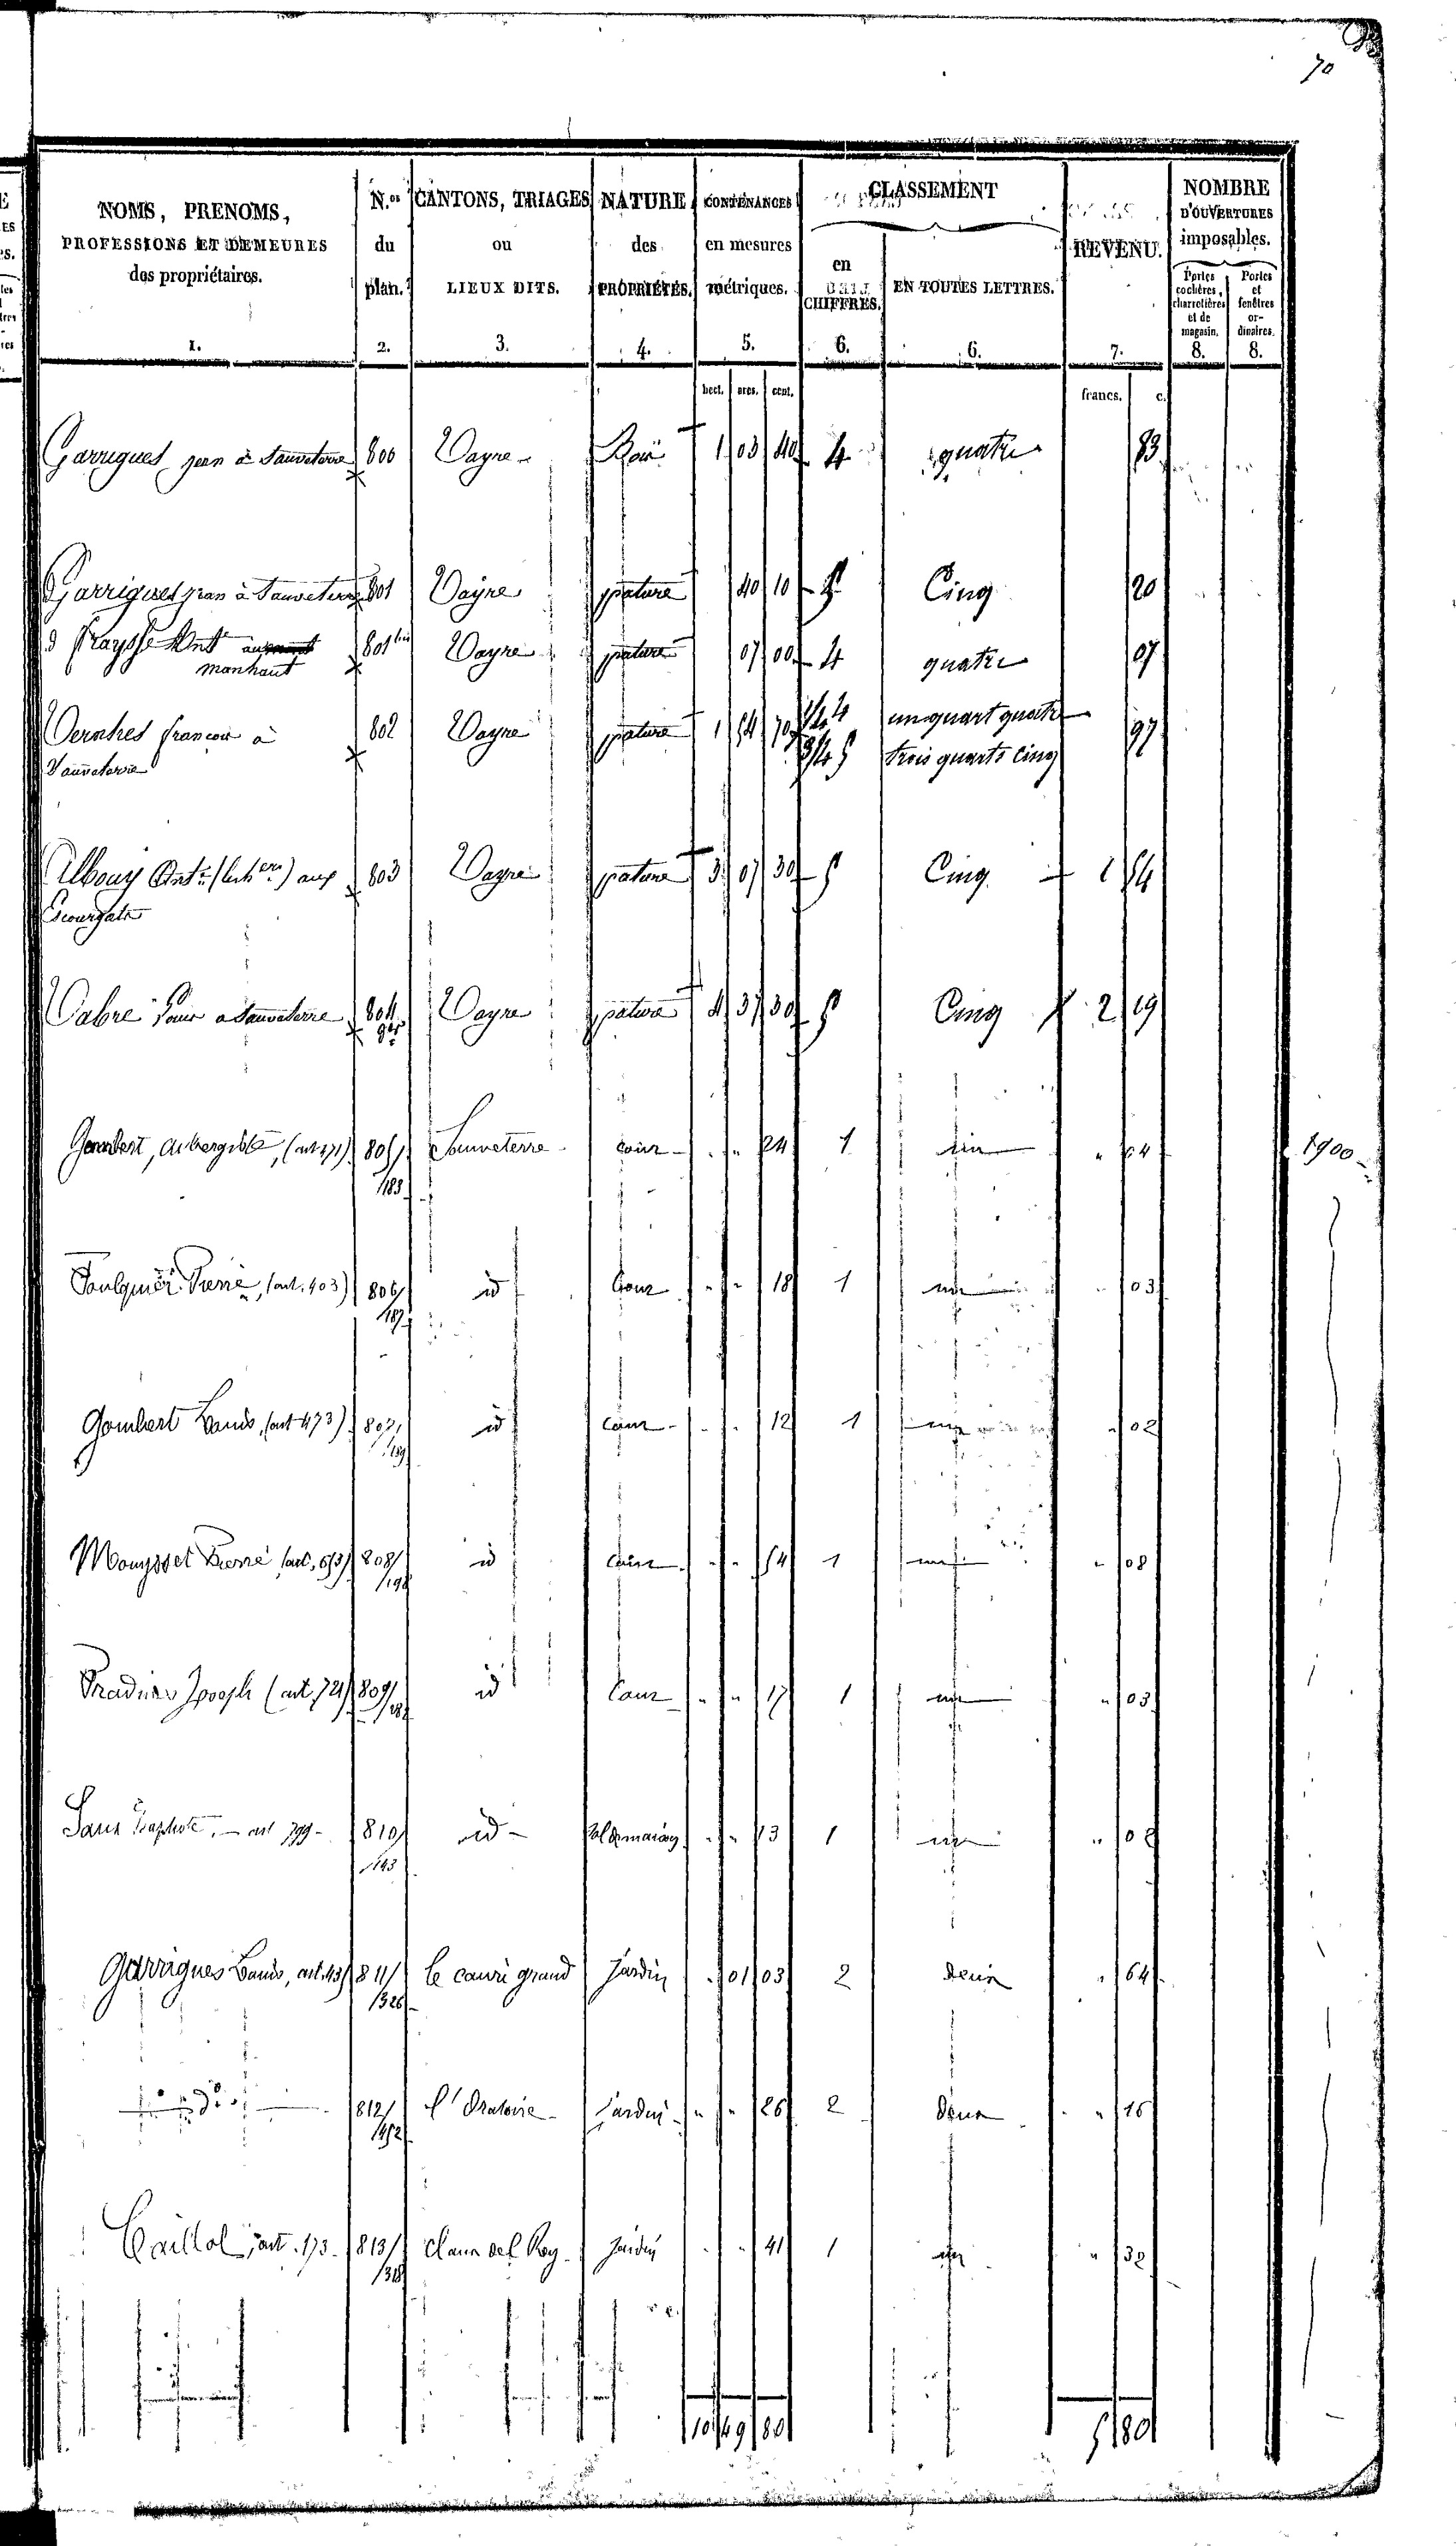 70
NOMS, PRENOMS, PROFESSIONS ET DEMEURES des propriétaires. 1.
N.os du plan. 2.
CANTONS, TRIAGES ou LIEUX DITS. 3.
NATURE des PROPRIÉTÉS. 4.
CONTENANCES en mesures métriques. 5.
CLASSEMENT
en CHIFFRES. 6.
EN TOUTES LETTRES. 6.
REVENU. 7.
NOMBRE D'OUVERTURES imposables.
Portes cochères, charretières et de magasin. 8.
Portes et fenêtres ordinaires. 8.
hect. ares. cent. francs. c.
Garrigues jean à Sauveterre 800 Vayre Bois 1 03 40 4 quatre 83
Garrigues jean à Sauveterre 801 Vayre pature 40 10 5 Cinq 20
Fraysse Ant.e
manhaut 801 bis Vayre pature 07 00 4 quatre 07
Vernhes françois à 802 Vayre pature 1 54 70 1/4 4 un quart quatre 97
Sauveterre 3/4 5 trois quarts Cinq
Albouy Ant.e aux 803 Vayre pature 3 07 30 5 Cinq 1 54
Escourgats
Vabre à Sauveterre 804 Vayre pature 4 37 30 5 Cinq 2 19
Gombert, Aubergiste, (art 471) 805/183 Sauveterre cour " 24 1 un " 04 1900
Foulquier Pierre, (art. 403) 806/187 id Cour " " 18 1 un " 03
Gombert Louis, (art 473) 807/189 id Cour " " 12 1 un " 02
Mouysset Pierre (art. 653) 808/198 id Cour " " 54 1 un " 08
Pradines Joseph (art. 721) 809 id Cour " " 17 1 un " 03
Sans Baptiste, — art 799 - 810/193 id - Sol de maison " " 13 1 un " 02
Garrigues Louis, art. 811/326 le grand Jardin " 01 03 2 deux " 64
d° 812/1452 l'Oratoire Jardin " " 26 2 deux " 16
Caillol, art. 173 - 813/318 Claux del Rey Jardin " " 41 1 un " 32
10 49 80 5 80